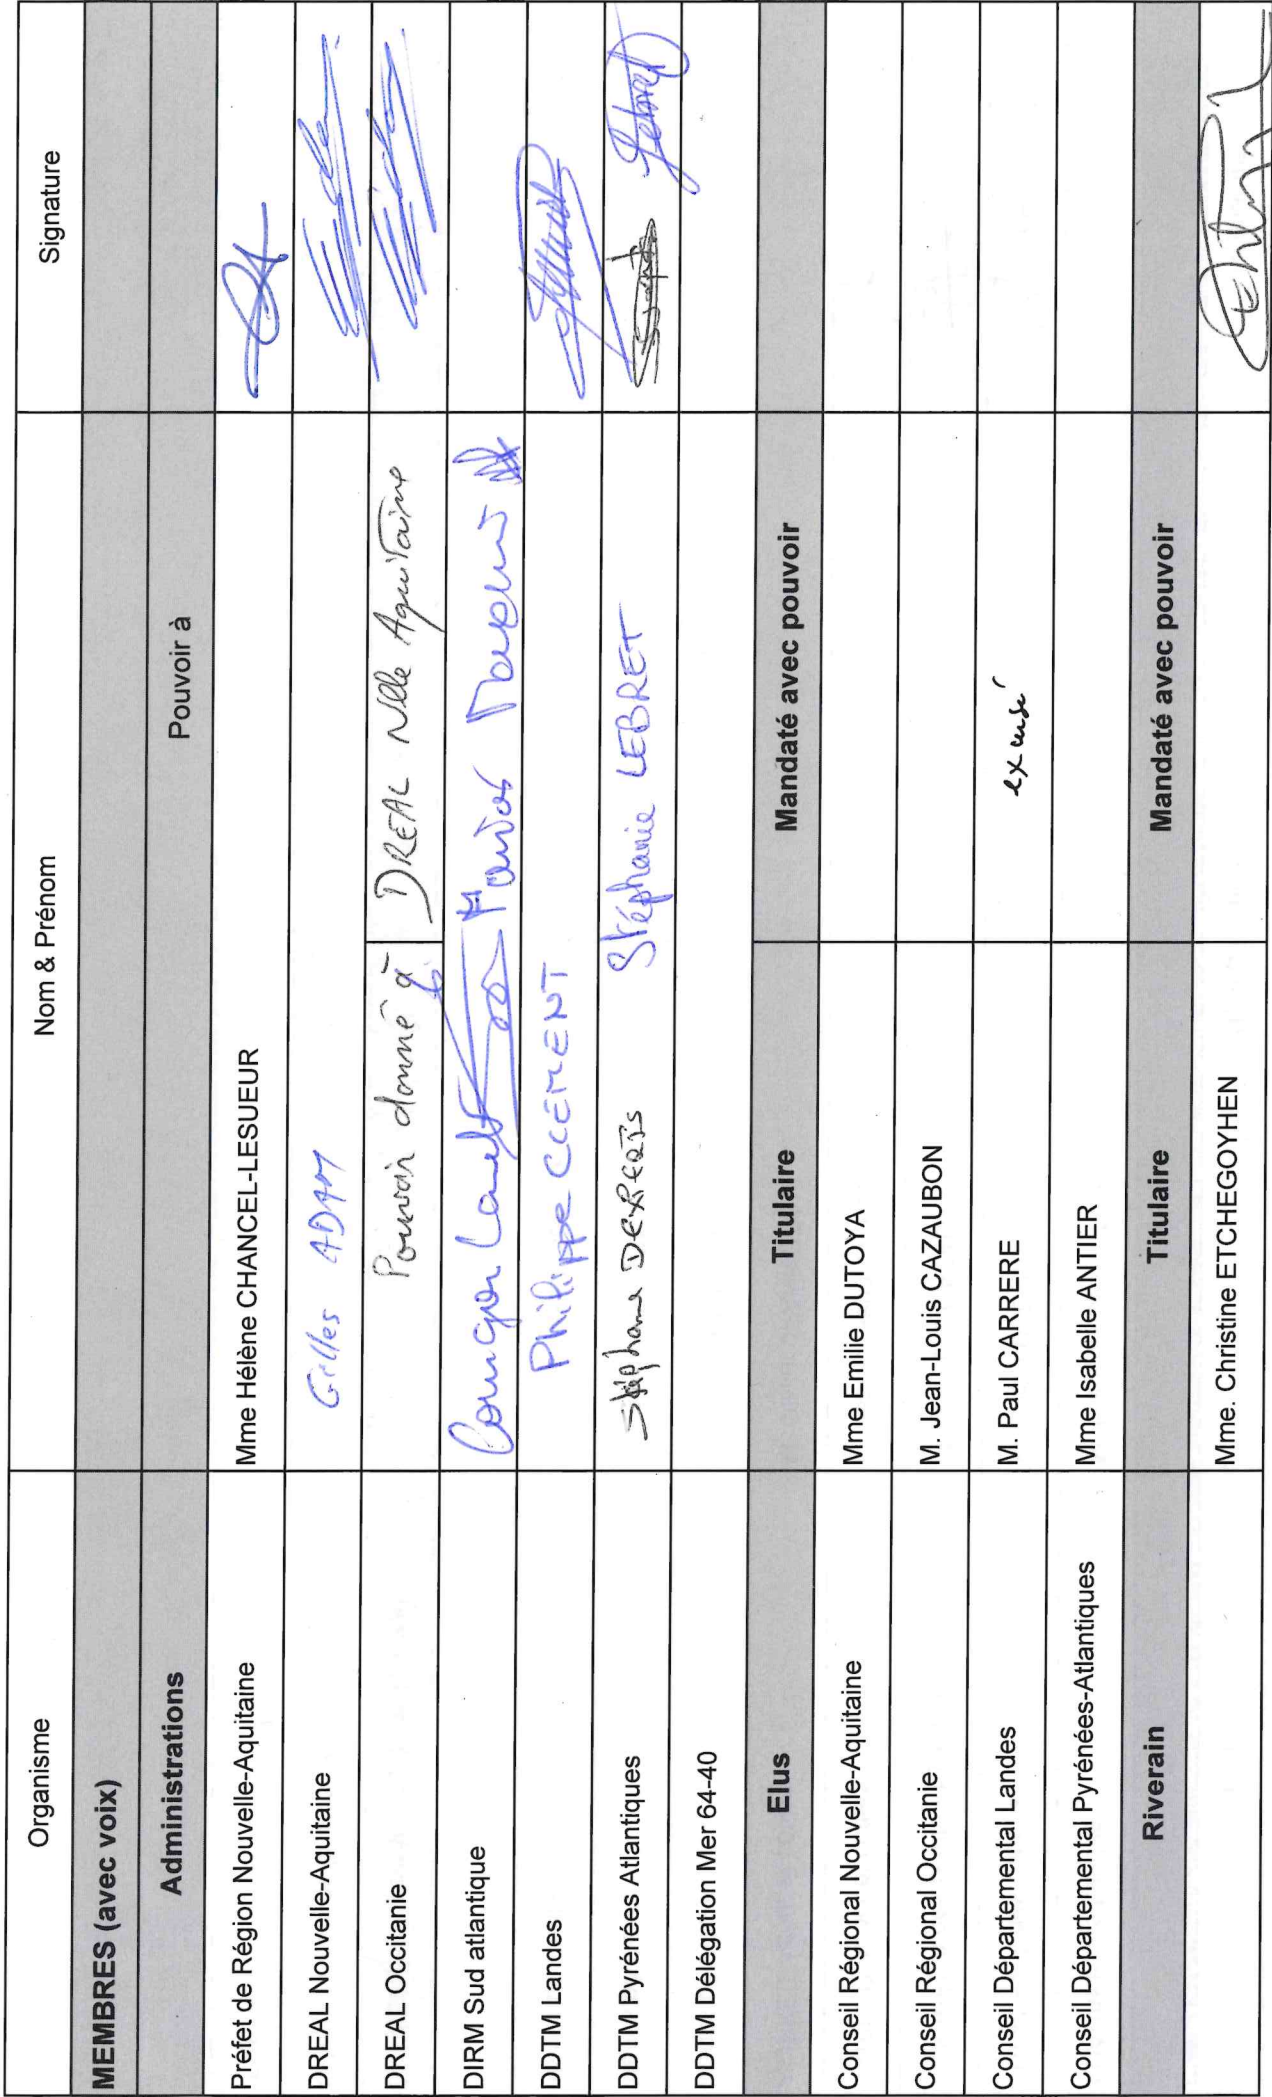 Organisme Nom & Prénom Signature
MEMBRES (avec voix)
Administrations Pouvoir à
Préfet de Région Nouvelle-Aquitaine Mme Hélène CHANCEL-LESUEUR
DREAL Nouvelle-Aquitaine Gilles ADAM
DREAL Occitanie Pouvoir donné à DREAL Nlle Aquitaine
DIRM Sud atlantique
DDTM Landes Philippe CLEMENT
DDTM Pyrénées Atlantiques Stéphanie LEBRET
DDTM Délégation Mer 64-40
Elus Titulaire Mandaté avec pouvoir
Conseil Régional Nouvelle-Aquitaine Mme Emilie DUTOYA
Conseil Régional Occitanie M. Jean-Louis CAZAUBON
Conseil Départemental Landes M. Paul CARRERE excusé
Conseil Départemental Pyrénées-Atlantiques Mme Isabelle ANTIER
Riverain Titulaire Mandaté avec pouvoir
Mme. Christine ETCHEGOYHEN